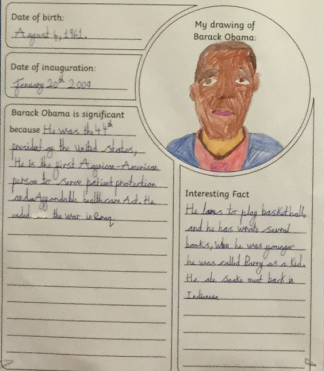 Date of birth:
August 4, 1961.
Date of inauguration:
January 20th 2009
My drawing of
Barack Obama:
Barack Obama is significant
because He was the 44th
president of the united states,
He is the first African-American
person to serve patient protection
and Affordable healthcare Ad. He
ended the war in Iraq.
Interesting Fact
He loves to play basketball,
and he has wrote several
books, Wen he was younger
he was called Barry as a kid.
He ate snake meat back in
Indonesia